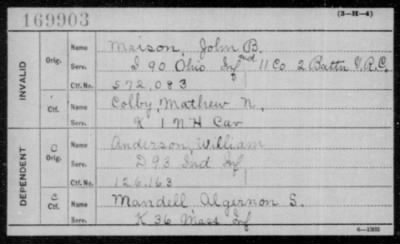 169903
(3-H-4)
INVALID
Orig. Name Maison, John B.
Serv. I 90 Ohio Inf and 11 Co 2 Battn V.R.C.
Ctf. No. 572,083
Ctf. Name Colby, Mathew N.
Serv. K 1 N H Cav
DEPENDENT
O Orig. Name Anderson, William
Serv. D 93 Ind Inf
Ctf. No. 126,163
C Ctf. Name Mandell Algernon S.
Serv. K 36 Mass Inf